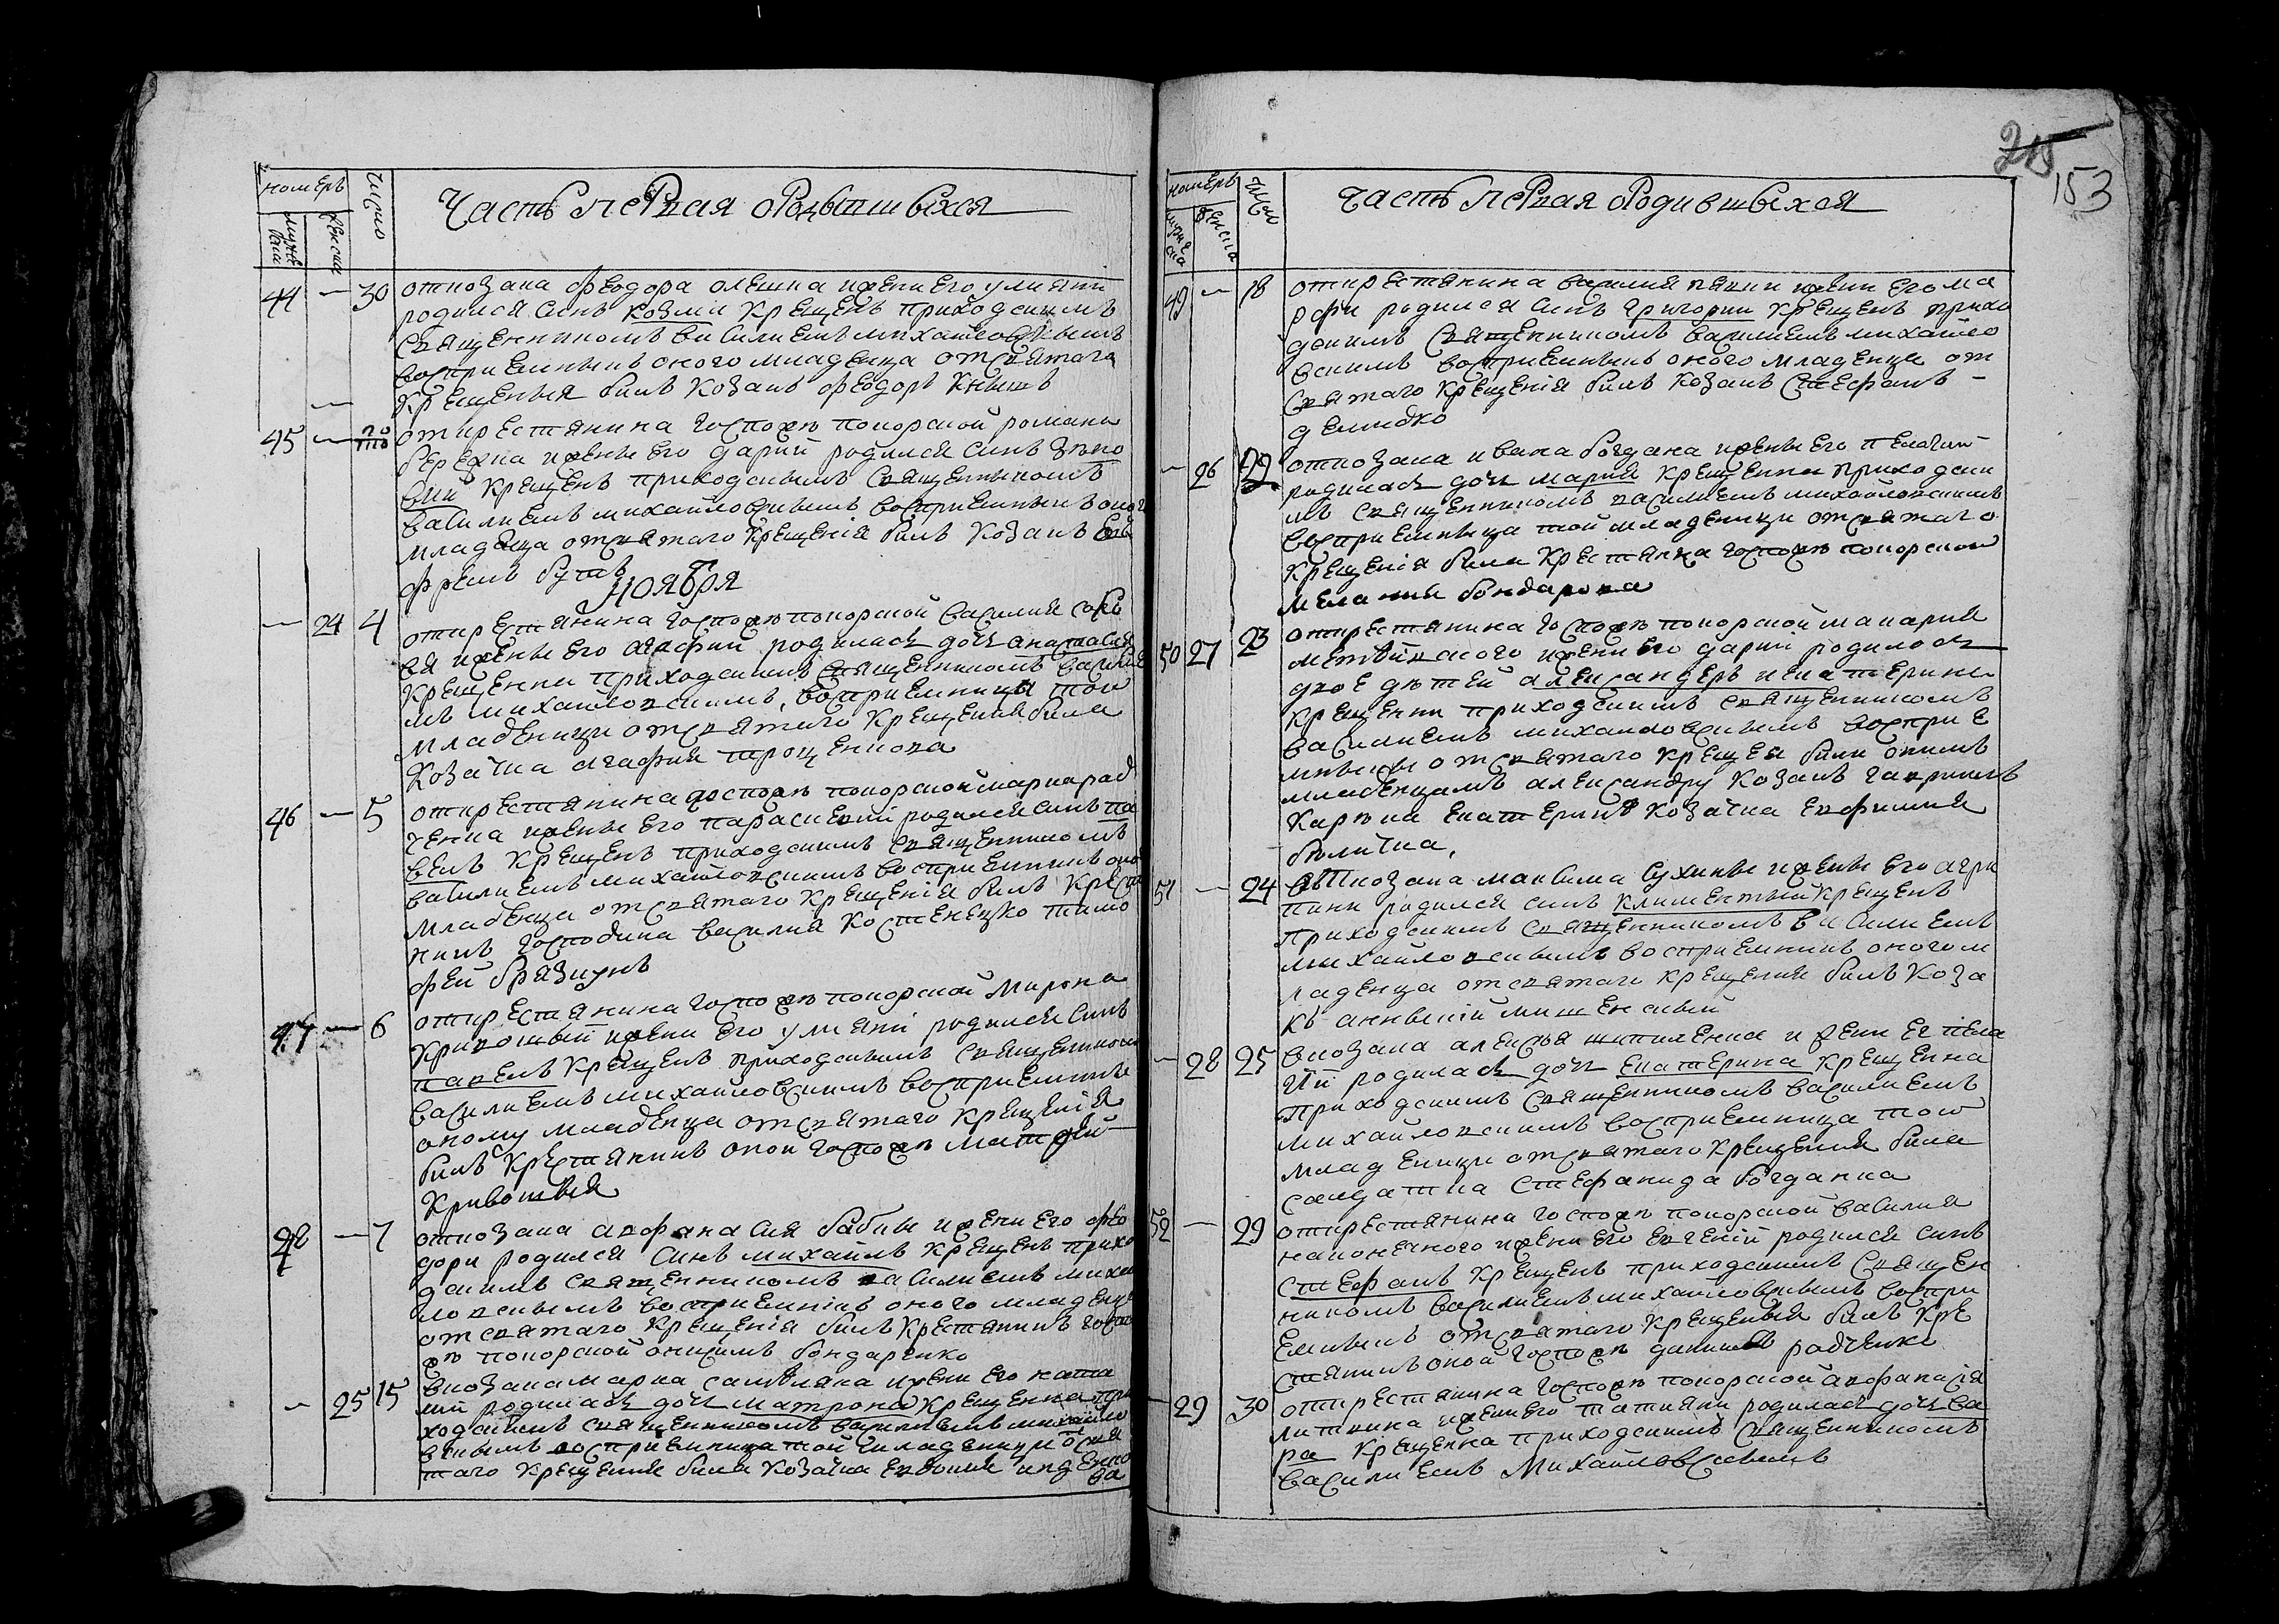 номеръ число Часть первая о Родывшыхся
мужеска женска
44 — 30 от козака Феодора олешка и жени его улияні
родился синъ козми крещенъ приходскимъ
священникомъ василиемъ михайловскимъ
восприемныкъ оного младенца от святаго
крещеныя билъ козакъ феодоръ Кнышъ
45 — от крестянина госпожѣ покорской романа
бережка и жены его дарии родился синъ
крещенъ приходскимъ священныкомъ
василиемъ михайловскимъ восприемныкъ оного
младенца от святаго крещенія билъ козакъ
фремъ бутъ
Ноября
— 24 4 от крестянина госпожѣ покорской василия
жены его агафии родилась дочъ анастасия
крещенна приходскимъ священникомъ василие
мъ михайловскимъ, восприемница той
младеници от святаго крещения била
козачка агафия троценкова
46 — 5 от крестянина госпожѣ покорской марка рад
ченка и жены его параскевіи родился синъ па
велъ крещенъ приходскимъ священникомъ
василиемъ михайловскимъ восприемникъ оного
младенца от святаго крещенія билъ крестя
нинъ господина василия Костенецко тимо
фей брязкунъ
47 — 6 от крестянина госпожѣ покорской Мирона
кривошыи и жени его улияні родился синъ
павелъ крещенъ приходскымъ священникомъ
василиемъ михайловскимъ восприемникъ
оному младенца от святаго крещенія
билъ крестянинъ оной госпожѣ матфей
Кривошыя
48 — 7 от козака афанасия бабы и жени его фео
дори родился синъ михаилъ крещенъ прихо
дскимъ священникомъ василиемъ михаи
ловскымъ восприемникъ оного младенца
от святаго крещенія билъ крестянинъ госпо
жѣ покорской онисимъ бондаренко
— 25 15 в козака марка самойлика и жени его ната
лии родилась дочъ матрона крещенна при
ходскимъ священникомъ василиемъ михайло
вскымъ восприемница той младеници от свя
таго крещения била козачка евдокия
номеръ число часть первая о Родившыхся 153
мужеска женска
49 — 18 от крестянина василия и жени его ма
рфи родился синъ григории крещенъ прихо
дскимъ священникомъ василиемъ михайло
вскимъ восприемникъ оного младенца от
святаго крещенія билъ козакъ стефанъ
демидко
— 26 22 от козака ивана богдана и жены его пелагии
родилась дочъ мария крещенна приходски
мъ священникомъ василиемъ михайловскимъ
восприемница той младеници от святаго
крещенія била крестянка госпожѣ покорской
мелания бондарова
50 27 23 от крестянина госпожѣ покорской макария
и жени его дарии родилось
двое дѣтей александеръ и екатерина
крещенни приходскимъ священникомъ
василиемъ михайловскымъ восприе
мныкы от святаго крещения били онимъ
младенцамъ александру козакъ гавриилъ
екатеринѣ козачка евфимия
билычка,
51 — 24 от козака максима сухины и жены его агри
пини родился синъ климентый крещенъ
приходскимъ священникомъ василиемъ
михайловскымъ восприемникъ оного м
ладенца от святаго крещения билъ коза
къ
— 28 25 в козака алексѣя шипиленка и жени ег пела
гии родилась дочъ екатерина крещенна
приходскимъ священникомъ василиемъ
михайловскимъ восприемница той
младеници от святаго крещения била
салдатка стефанида богданка
52 — 29 от крестянина госпожѣ покорской василия
наконечного и жени его евгении родился синъ
стефанъ крещенъ приходскимъ священ
никомъ василиемъ михайловскымъ воспри
емныкъ от святаго крещеныя билъ кре
стянинъ оной госпожѣ даниилъ радченко
— 29 30 от крестянина госпожѣ покорской афанасія
литвина и жени его татияни родилась дочъ ва
ра крещенна приходскимъ священникомъ
василиемъ Михайловскымъ